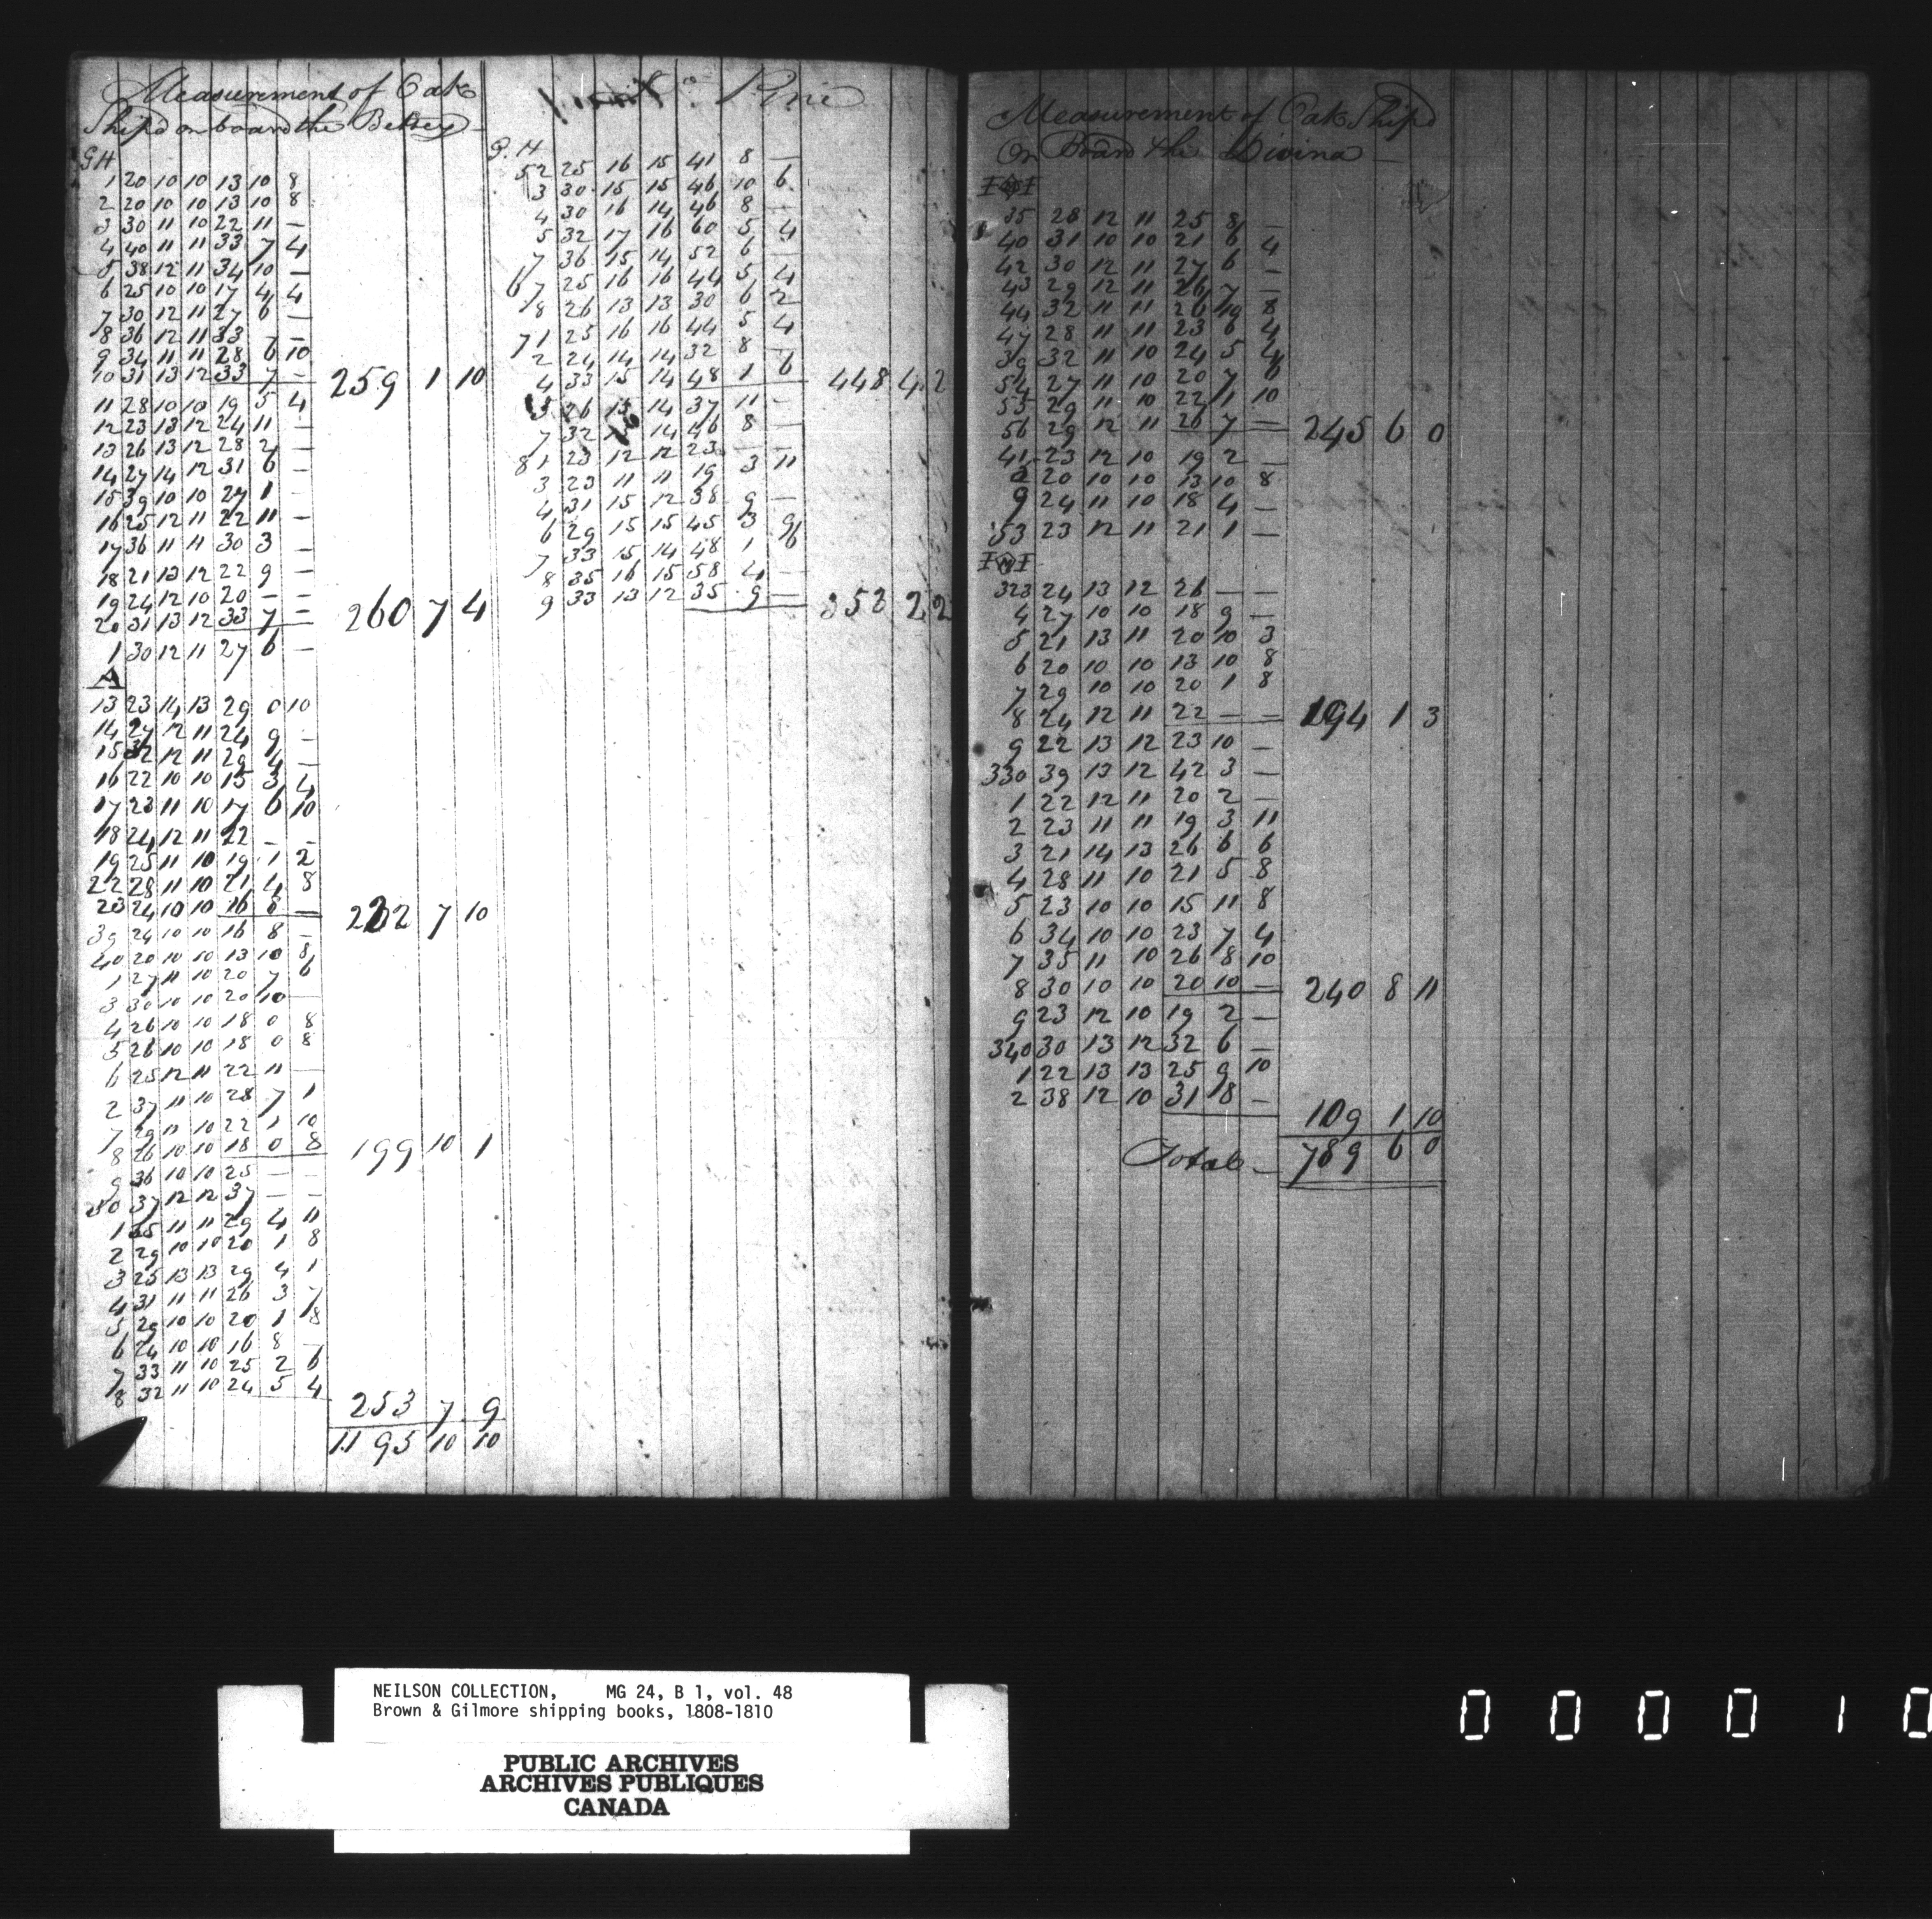 Measurement of Oak
Shipd on board the Betsey
GH
1 20 10 10 13 10 8
2 20 10 10 13 10 8
3 30 11 10 22 11 —
4 40 11 11 33 7 4
5 38 12 11 34 10 —
6 25 10 10 17 4 4
7 30 12 11 27 6 —
8 36 12 11 33 — —
9 34 11 11 28 6 10
10 31 13 12 33 7 — 259 1 10
11 28 10 10 19 5 4
12 23 13 12 24 11 —
13 26 13 12 28 2 —
14 27 14 12 31 6 —
15 39 10 10 27 1 —
16 25 12 11 22 11 —
17 36 11 11 30 3 —
18 21 13 12 22 9 —
19 24 12 10 20 — —
20 31 13 12 33 7 — 260 7 4
1 30 12 11 27 6 —
A
13 23 14 13 29 0 10
14 27 12 11 24 9 —
15 32 12 11 29 4 —
16 22 10 10 15 3 4
17 23 11 10 17 6 10
18 24 12 11 22 — —
19 25 11 10 19 1 2
22 28 11 10 21 4 8
23 24 10 10 16 8 — 222 7 10
39 24 10 10 16 8 —
40 20 10 10 13 10 8
1 27 11 10 20 7 6
3 30 10 10 20 10 —
4 26 10 10 18 0 8
5 26 10 10 18 0 8
6 25 12 11 22 11 —
2 37 11 10 28 7 1
7 29 11 10 22 1 10
8 26 10 10 18 0 8 199 10 1
9 36 10 10 25 — —
50 37 12 12 37 — —
1 35 11 11 29 4 11
2 29 10 10 20 1 8
3 25 13 13 29 4 1
4 31 11 11 26 3 7
5 29 10 10 20 1 8
6 24 10 10 16 8 —
7 33 11 10 25 2 6
8 32 11 10 24 5 4
253 7 9
1195 10 10
Pine
G.H
52 25 16 15 41 8 —
3 30 15 15 46 10 6
4 30 16 14 46 8 —
5 32 17 16 60 5 4
7 36 15 14 52 6 —
67 25 16 16 44 5 4
8 26 13 13 30 6 2
71 25 16 16 44 5 4
2 24 14 14 32 8 —
4 33 15 14 48 1 6 448 4 2
5 26 15 14 37 11 —
7 32 14 46 8 —
81 23 12 12 23 — —
3 23 11 11 19 3 11
4 31 15 12 38 9 —
6 29 15 15 45 3 9
7 33 15 14 48 1 6
8 35 16 15 58 4 —
9 33 13 12 35 9 — 353 2 2
Measurement of Oak Shipd
On Board the Divina
35 28 12 11 25 8 —
40 31 10 10 21 6 4
42 30 12 11 27 6 —
43 29 12 11 26 7 —
44 32 11 11 26 10 8
47 28 11 11 23 6 4
39 32 11 10 24 5 4
54 27 11 10 20 7 6
55 29 11 10 22 1 10
56 29 12 11 26 7 — 245 6 0
41 23 12 10 19 2 —
20 10 10 13 10 8
9 24 11 10 18 4 —
53 23 12 11 21 1 —
323 24 13 12 26 — —
4 27 10 10 18 9 —
5 21 13 11 20 10 3
6 20 10 10 13 10 8
7 29 10 10 20 1 8
8 24 12 11 22 — — 194 1 3
9 22 13 12 23 10 —
330 39 13 12 42 3 —
1 22 12 11 20 2 —
2 23 11 11 19 3 11
3 21 14 13 26 6 6
4 28 11 10 21 5 8
5 23 10 10 15 11 8
6 34 10 10 23 7 4
7 35 11 10 26 8 10
8 30 10 10 20 10 — 240 8 11
9 23 12 10 19 2 —
340 30 13 12 32 6 —
1 22 13 13 25 9 10
2 38 12 10 31 8 —
109 1 10
Total 789 6 0
NEILSON COLLECTION, MG 24, B 1, vol. 48
Brown & Gilmore shipping books, 1808-1810
PUBLIC ARCHIVES
ARCHIVES PUBLIQUES
CANADA
0 0 0 0 1 0